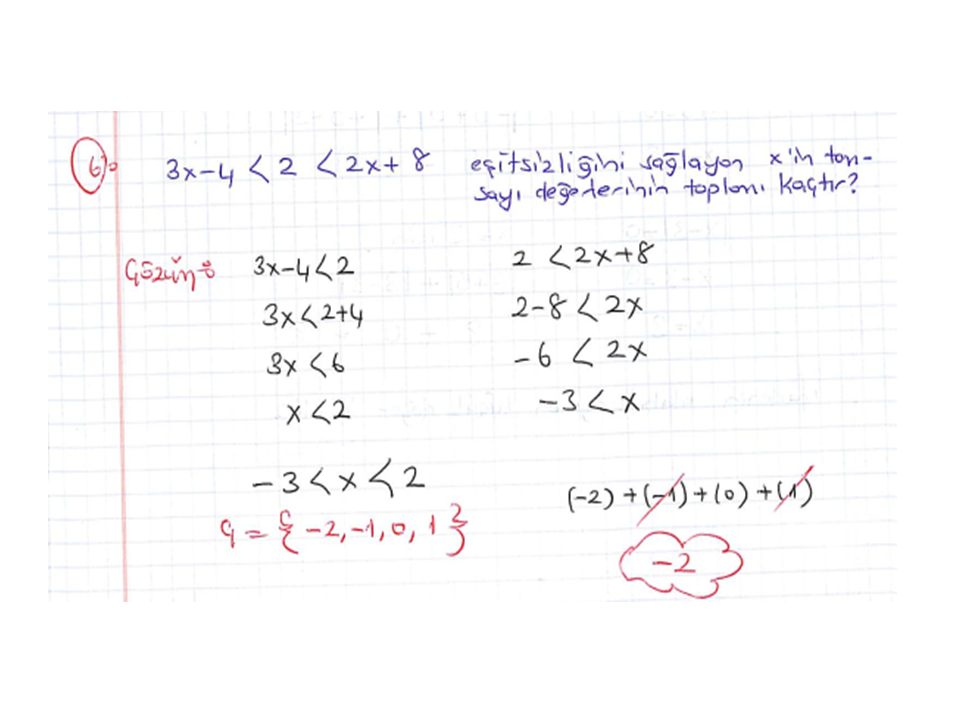 6)
3x-4 < 2 < 2x+8 eşitsizliğini sağlayan x'in tam-
sayı değerlerinin toplamı kaçtır?
Çözüm:
3x-4<2 2 <2x+8
3x<2+4 2-8 < 2x
3x <6 -6 < 2x
x<2 -3 < x
-3<x<2
(-2) + (-1) + (0) + (1)
Ç = { -2, -1, 0, 1 }
-2